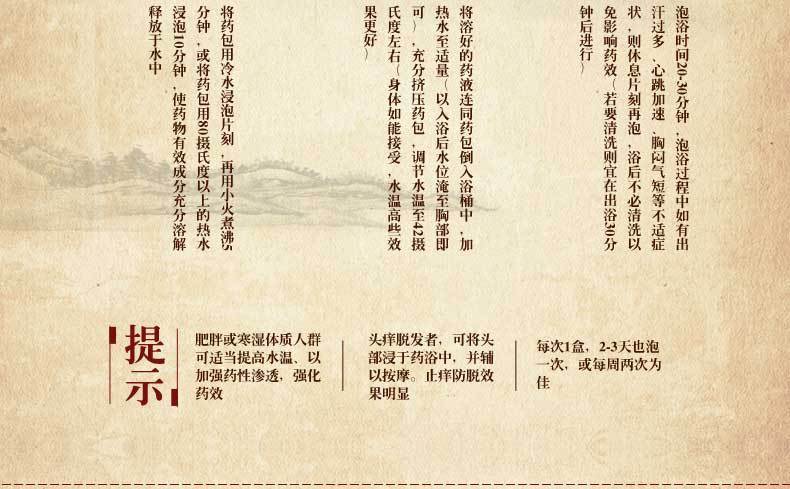 将药包用冷水浸泡片刻，再用小火煮沸5
分钟，或将药包用80摄氏度以上的热水
浸泡10分钟，使药物有效成分充分溶解
释放于水中
将溶好的药液连同药包倒入浴桶中，加
热水至适量（以入浴后水位淹至胸部即
可），充分挤压药包，调节水温至42摄
氏度左右（身体如能接受，水温高些效
果更好）
泡浴时间20-30分钟，泡浴过程中如有出
汗过多、心跳加速、胸闷气短等不适症
状，则休息片刻再泡，浴后不必清洗以
免影响药效（若要清洗则宜在出浴30分
钟后进行）
提示
肥胖或寒湿体质人群
可适当提高水温、以
加强药性渗透，强化
药效
头痒脱发者，可将头
部浸于药浴中，并辅
以按摩。止痒防脱效
果明显
每次1盒，2-3天也泡
一次，或每周两次为
佳